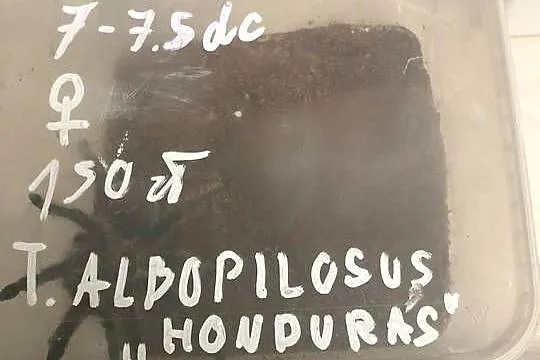 7-7.5 dc
♀
150 zł
T. ALBOPILOSUS
„HONDURAS"